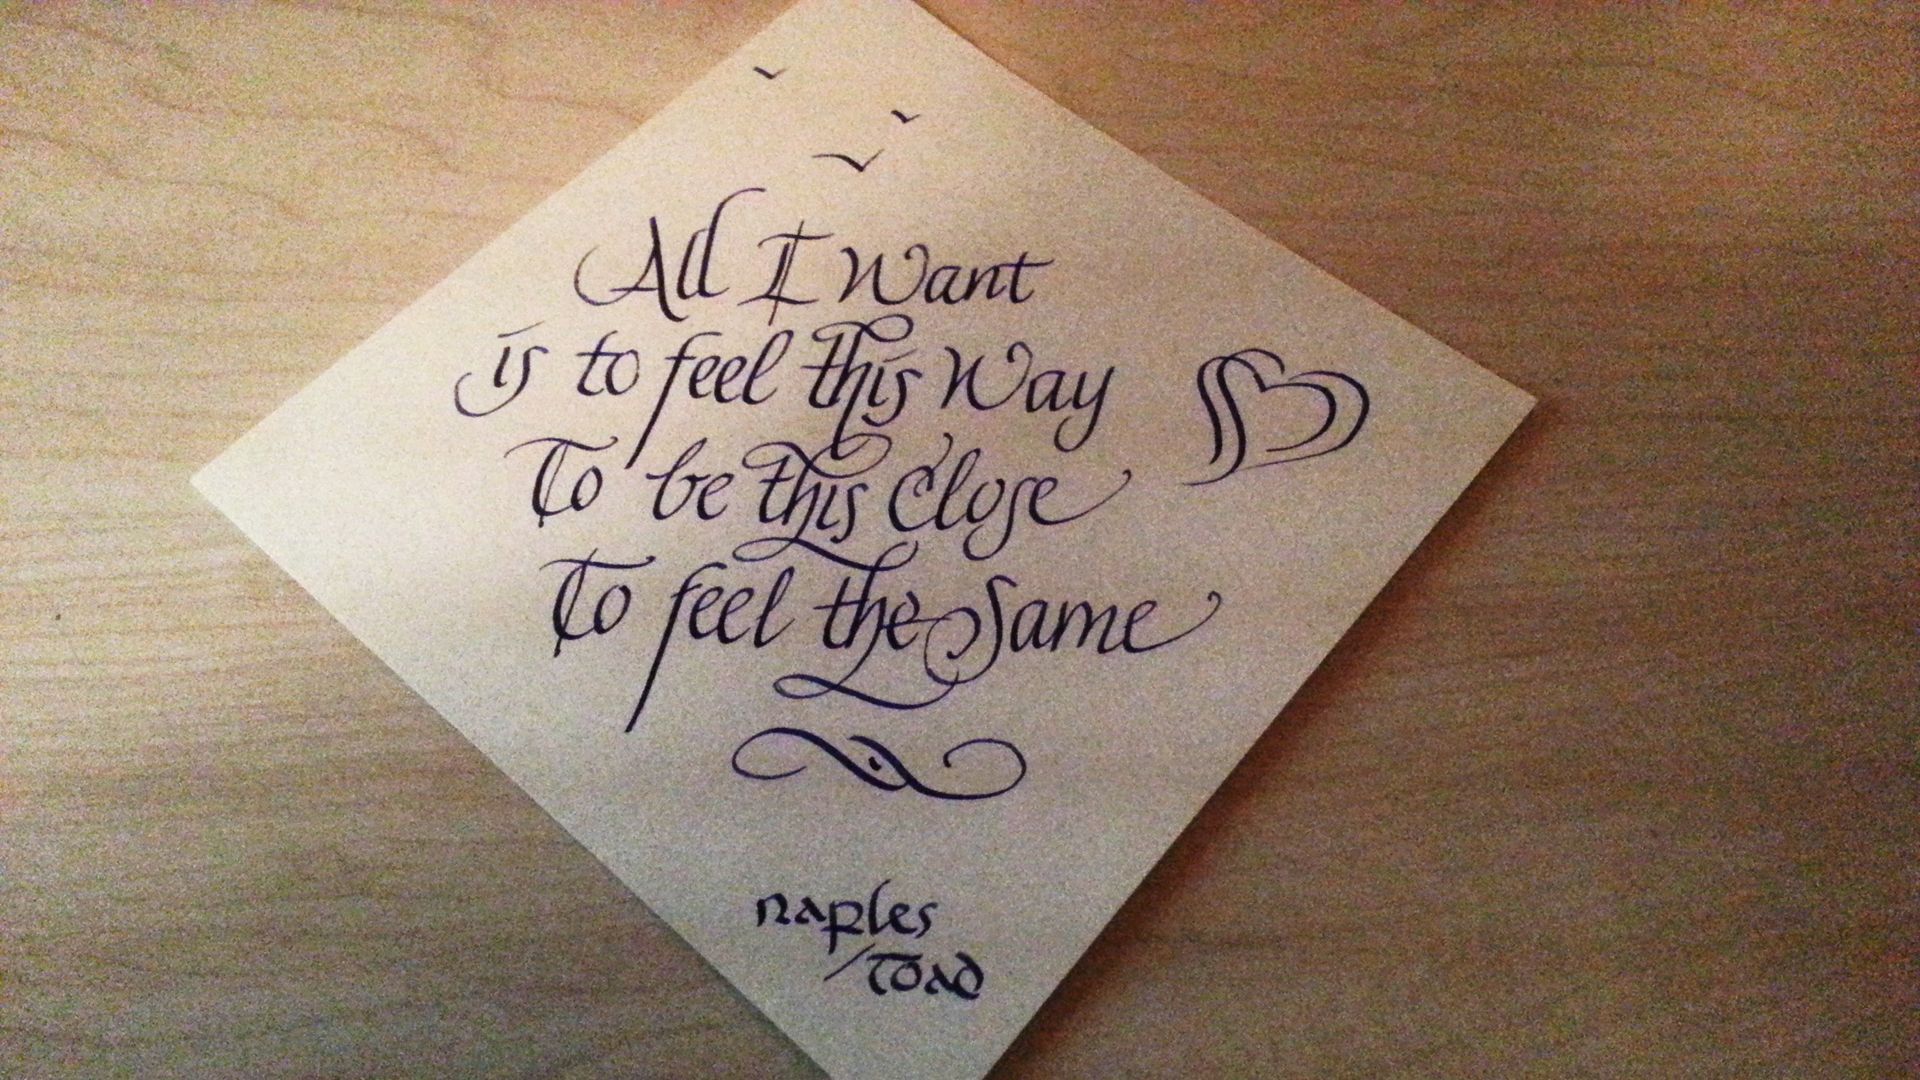 All I Want
is to feel this Way
To be this Close
To feel the Same
naples
/toad